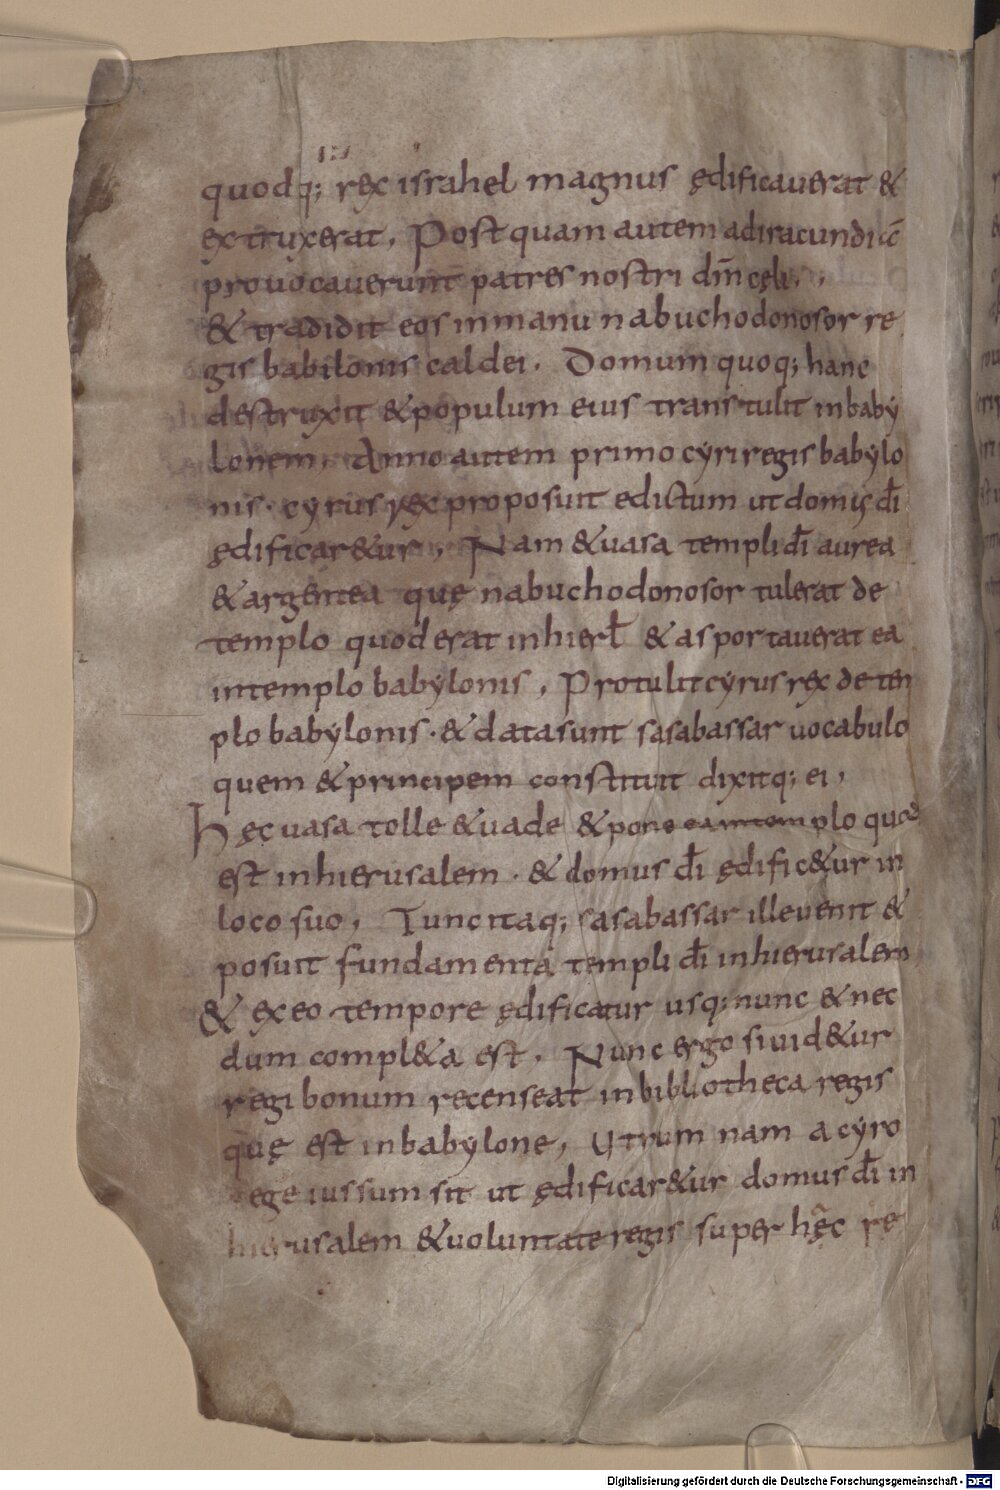 quodq; rex israhel magnus ędificauerat &
extruxerat, Postquam autem adiracundiā
prouocauerunt patres nostri dm̄ cęli,
& tradidit eos inmanu nabuchodonosor re
gis babilonis caldei. Domum quoq; hanc
destruxit &populum eius transtulit inbaby
lonem, Anno autem primo cyri regis babylo
nis. cyrus rex proposuit edictum ut domus dī
ędificar&ur, Nam &uasa templi dī aurea
&argentea quę nabuchodonosor tulerat de
templo quod erat inhierł &asportauerat ea
intemplo babylonis, Protulit cyrus rex de tem
plo babylonis. & data sunt sasabassar uocabulo
quem &principem constituit dixitq; ei,
Hęc uasa tolle &uade &pone ea intemplo quod
est inhierusalem. & domus dī ędific&ur in
loco suo, Tunc itaq; sasabassar ille uenit &
posuit fundamenta templi dī inhierusalem
& ex eo tempore ędificatur usq; nunc &nec
dum compl&a est. Nunc ergo si uid&ur
regi bonum recenseat inbibliotheca regis
quę est inbabylone, Utrum nam a cyro
ege iussum sit ut ędificar&ur domus dī in
hierusalem &uoluntate regis super hęc re
Digitalisierung gefördert durch die Deutsche Forschungsgemeinschaft - DFG